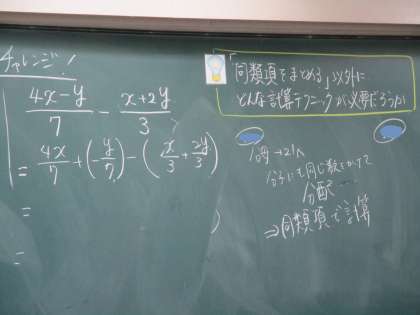 チャレンジ!
(4x-y)/7 - (x+2y)/3
= 4x/7 + (-y/7) - (x/3 + 2y/3)
=
=
「同類項をまとめる」以外に
どんな計算テクニックが必要だろうか
分母→21へ
分子にも同じ数をかけて
分配…
⇒同類項で計算